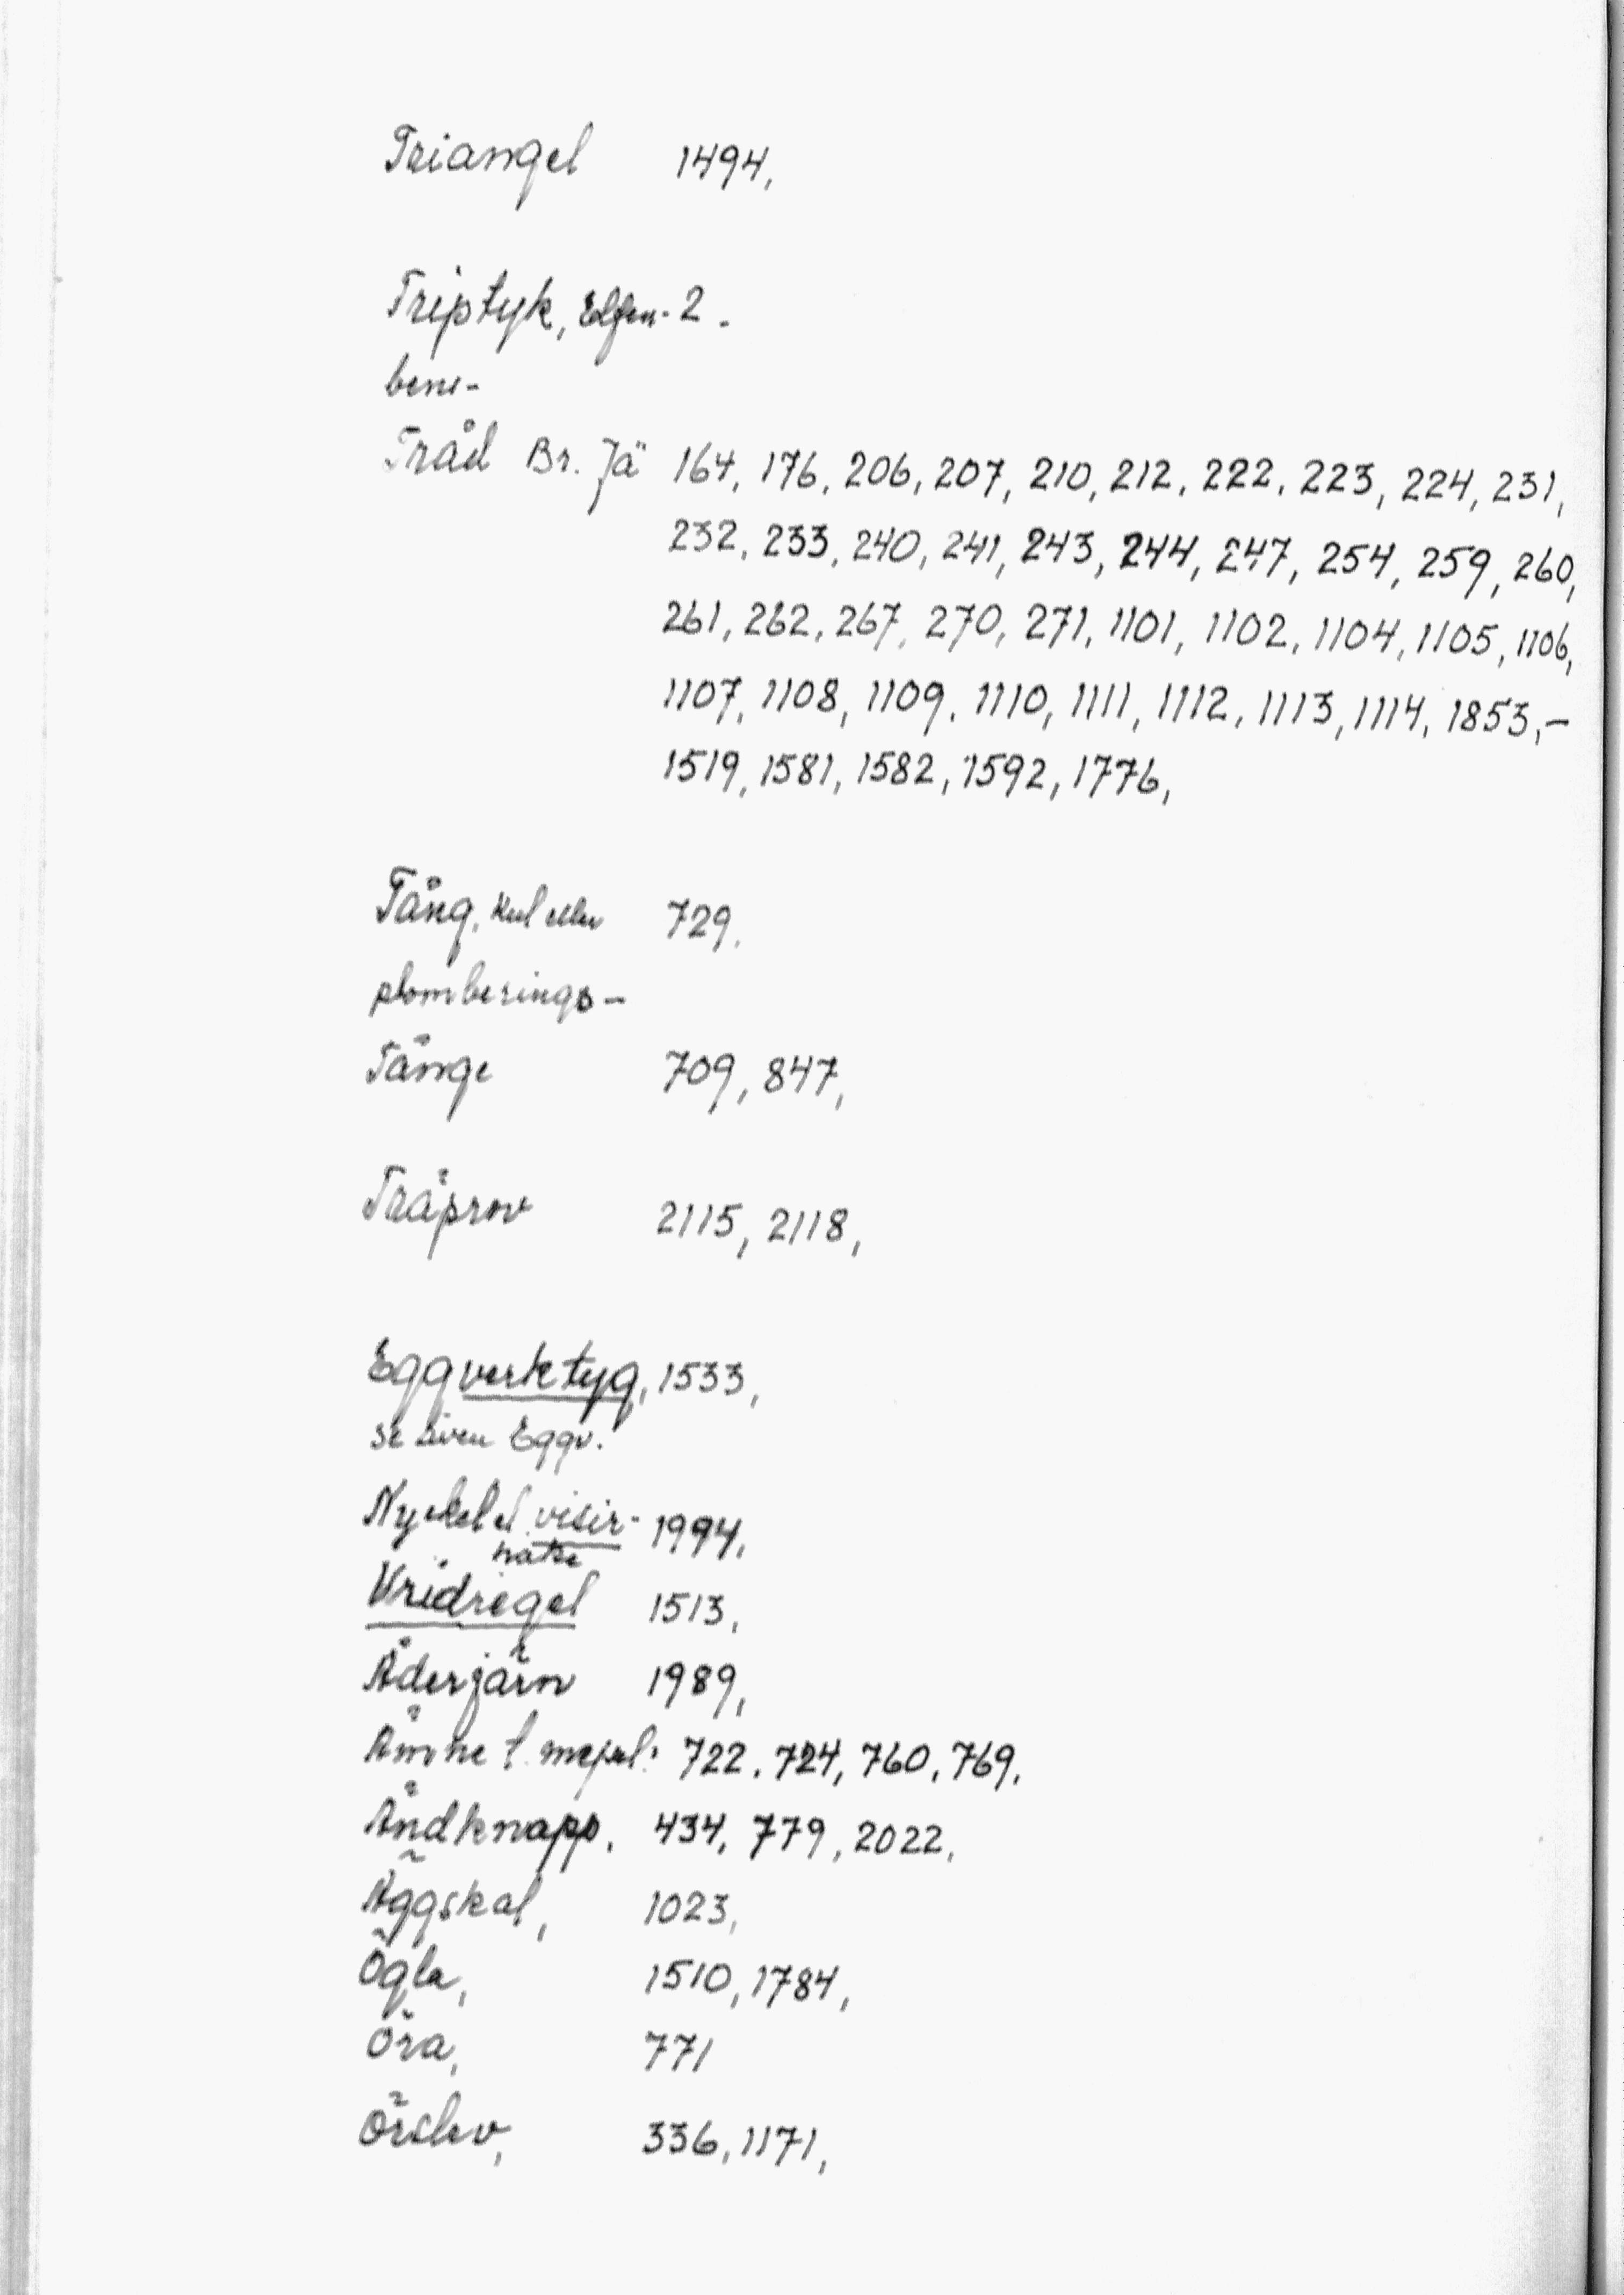 Triangel 1494,
Triptyk, Elfen- 2.
bens-
Tråd Br. Jä 164, 176, 206, 207, 210, 212, 222, 223, 224, 231,
232, 233, 240, 241, 243, 244, 247, 254, 259, 260,
261, 262, 267, 270, 271, 1101, 1102, 1104, 1105, 1106,
1107, 1108, 1109, 1110, 1111, 1112, 1113, 1114, 1853,-
1519, 1581, 1582, 1592, 1776,
Tång, kul eller 729,
plomberings-
Tånge 709, 847,
Träprov 2115, 2118,
Eggverktyg, 1533,
se även Eggv.
Nyckel el visir- 1994,
hake
Vridregel 1513,
Åderjärn 1989,
Ämne t. 722, 724, 760, 769,
Ändknapp, 434, 779, 2022,
Äggskal, 1023,
Ögla, 1510, 1784,
Öra, 771
Örslev, 336, 1171,